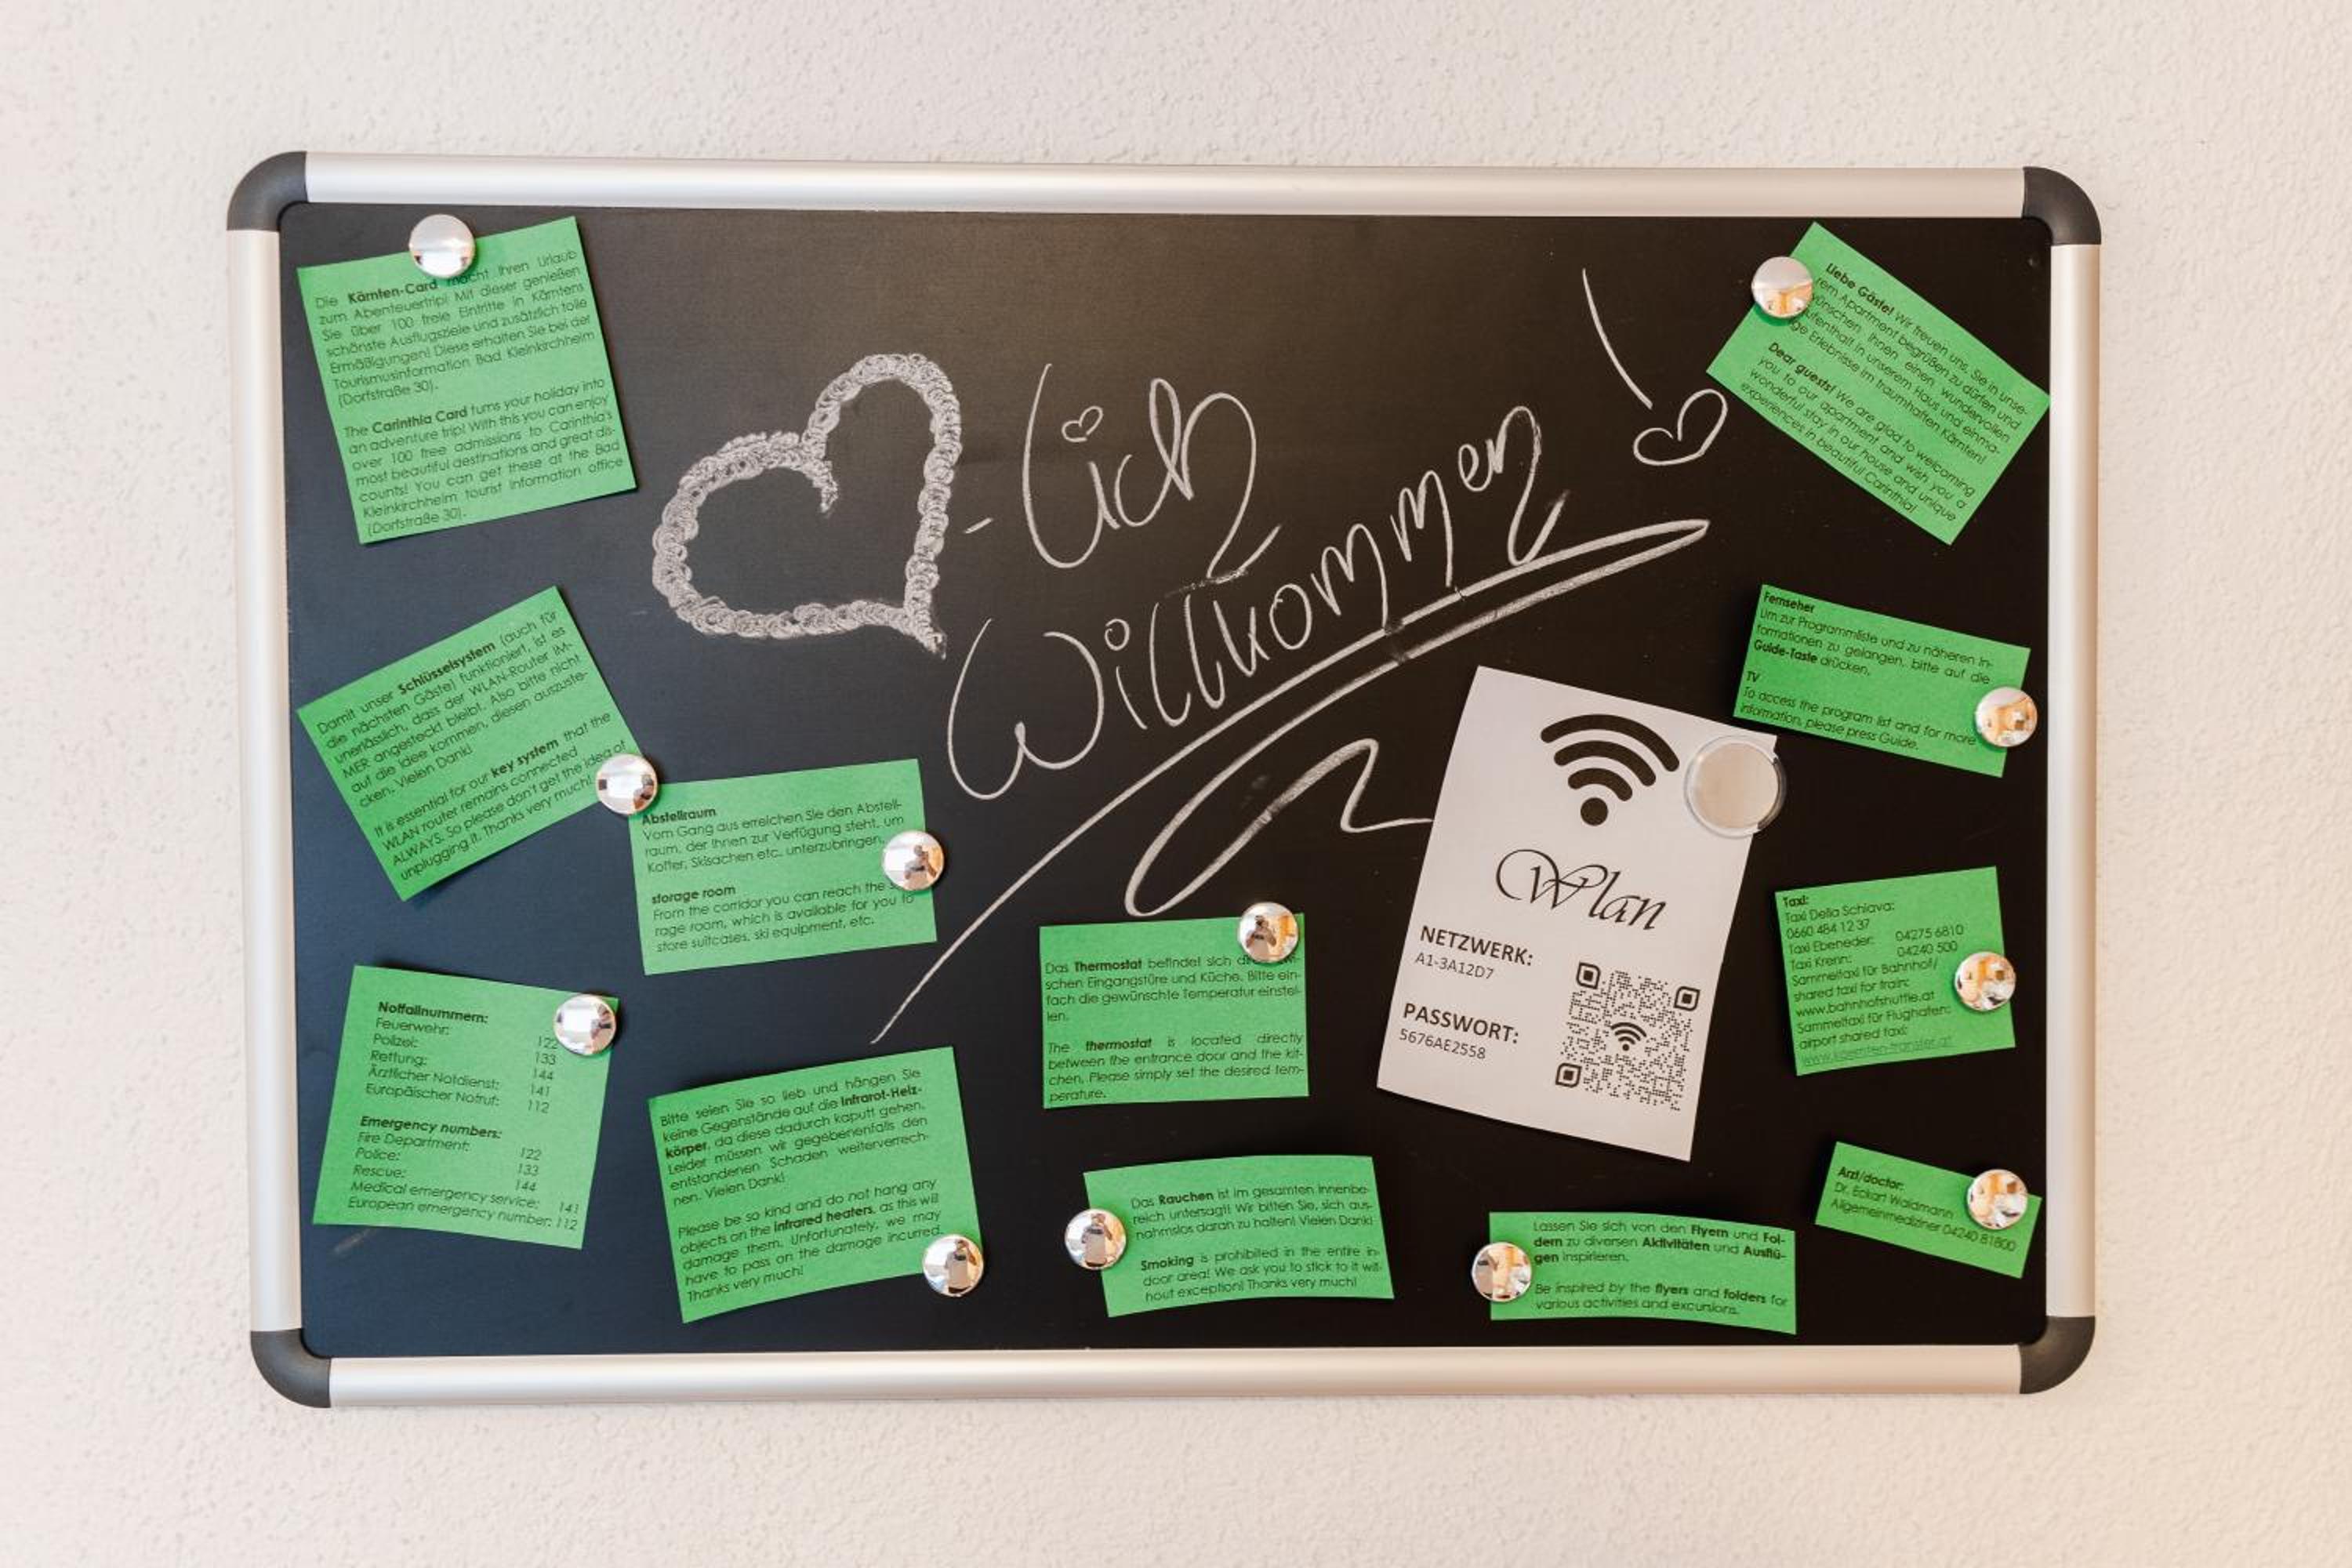 Die Kärnten-Card macht Ihren Urlaub
zum Abenteuertrip! Mit dieser genießen
Sie über 100 freie Eintritte in Kärntens
schönste Ausflugsziele und zusätzlich tolle
Ermäßigungen! Diese erhalten Sie bei der
Tourismusinformation Bad Kleinkirchheim
(Dorfstraße 30).
The Carinthia Card turns your holiday into
an adventure trip! With this you can enjoy
over 100 free admissions to Carinthia's
most beautiful destinations and great dis-
counts! You can get these at the Bad
Kleinkirchheim tourist information office
(Dorfstraße 30).
-lich
Willkommen!
Liebe Gäste! Wir freuen uns, Sie in unse-
rem Apartment begrüßen zu dürfen und
wünschen Ihnen einen wundervollen
ufenthalt in unserem Haus und einma-
ge Erlebnisse im traumhaften Kärnten!
Dear guests! We are glad to welcoming
you to our apartment and wish you a
wonderful stay in our house and unique
experiences in beautiful Carinthia!
Damit unser Schlüsselsystem (auch für
die nächsten Gäste) funktioniert, ist es
unerlässlich, dass der WLAN-Router IM-
MER angesteckt bleibt. Also bitte nicht
auf die Idee kommen, diesen auszuste-
cken. Vielen Dank!
It is essential for our key system that the
WLAN router remains connected
ALWAYS. So please don't get the idea of
unplugging it. Thanks very much!
Fernseher
Um zur Programmliste und zu näheren In-
formationen zu gelangen, bitte auf die
Guide-Taste drücken.
TV
To access the program list and for more
information, please press Guide.
Abstellraum
Vom Gang aus erreichen Sie den Abstell-
raum, der Ihnen zur Verfügung steht, um
Koffer, Skisachen etc. unterzubringen.
storage room
From the corridor you can reach the
rage room, which is available for you to
store suitcases, ski equipment, etc.
Wlan
NETZWERK:
A1-3A12D7
PASSWORT:
5676AE2558
Taxi:
Taxi Della Schiava:
0660 484 12 37
Taxi Ebeneder: 04275 6810
Taxi Krenn: 04240 500
Sammeltaxi für Bahnhof/
shared taxi for train:
www.bahnhofshuttle.at
Sammeltaxi für Flughafen:
airport shared taxi:
www.kaernten-transfer.at
Das Thermostat befindet sich
schen Eingangstüre und Küche. Bitte ein-
fach die gewünschte Temperatur einstel-
len.
The thermostat is located directly
between the entrance door and the kit-
chen. Please simply set the desired tem-
perature.
Notfallnummern:
Feuerwehr: 122
Polizei: 133
Rettung: 144
Ärztlicher Notdienst: 141
Europäischer Notruf: 112
Emergency numbers:
Fire Department: 122
Police: 133
Rescue: 144
Medical emergency service: 141
European emergency number: 112
Bitte seien Sie so lieb und hängen Sie
keine Gegenstände auf die Infrarot-Heiz-
körper, da diese dadurch kaputt gehen.
Leider müssen wir gegebenenfalls den
entstandenen Schaden weiterverrech-
nen. Vielen Dank!
Please be so kind and do not hang any
objects on the infrared heaters, as this will
damage them. Unfortunately, we may
have to pass on the damage incurred.
Thanks very much!
Das Rauchen ist im gesamten Innenbe-
reich untersagt! Wir bitten Sie, sich aus-
nahmslos daran zu halten! Vielen Dank!
Smoking is prohibited in the entire in-
door area! We ask you to stick to it wit-
hout exception! Thanks very much!
Lassen Sie sich von den Flyern und Fol-
dern zu diversen Aktivitäten und Ausflü-
gen inspirieren.
Be inspired by the flyers and folders for
various activities and excursions.
Arzt/doctor:
Dr. Eckart Waldmann
Allgemeinmediziner 04240 81800